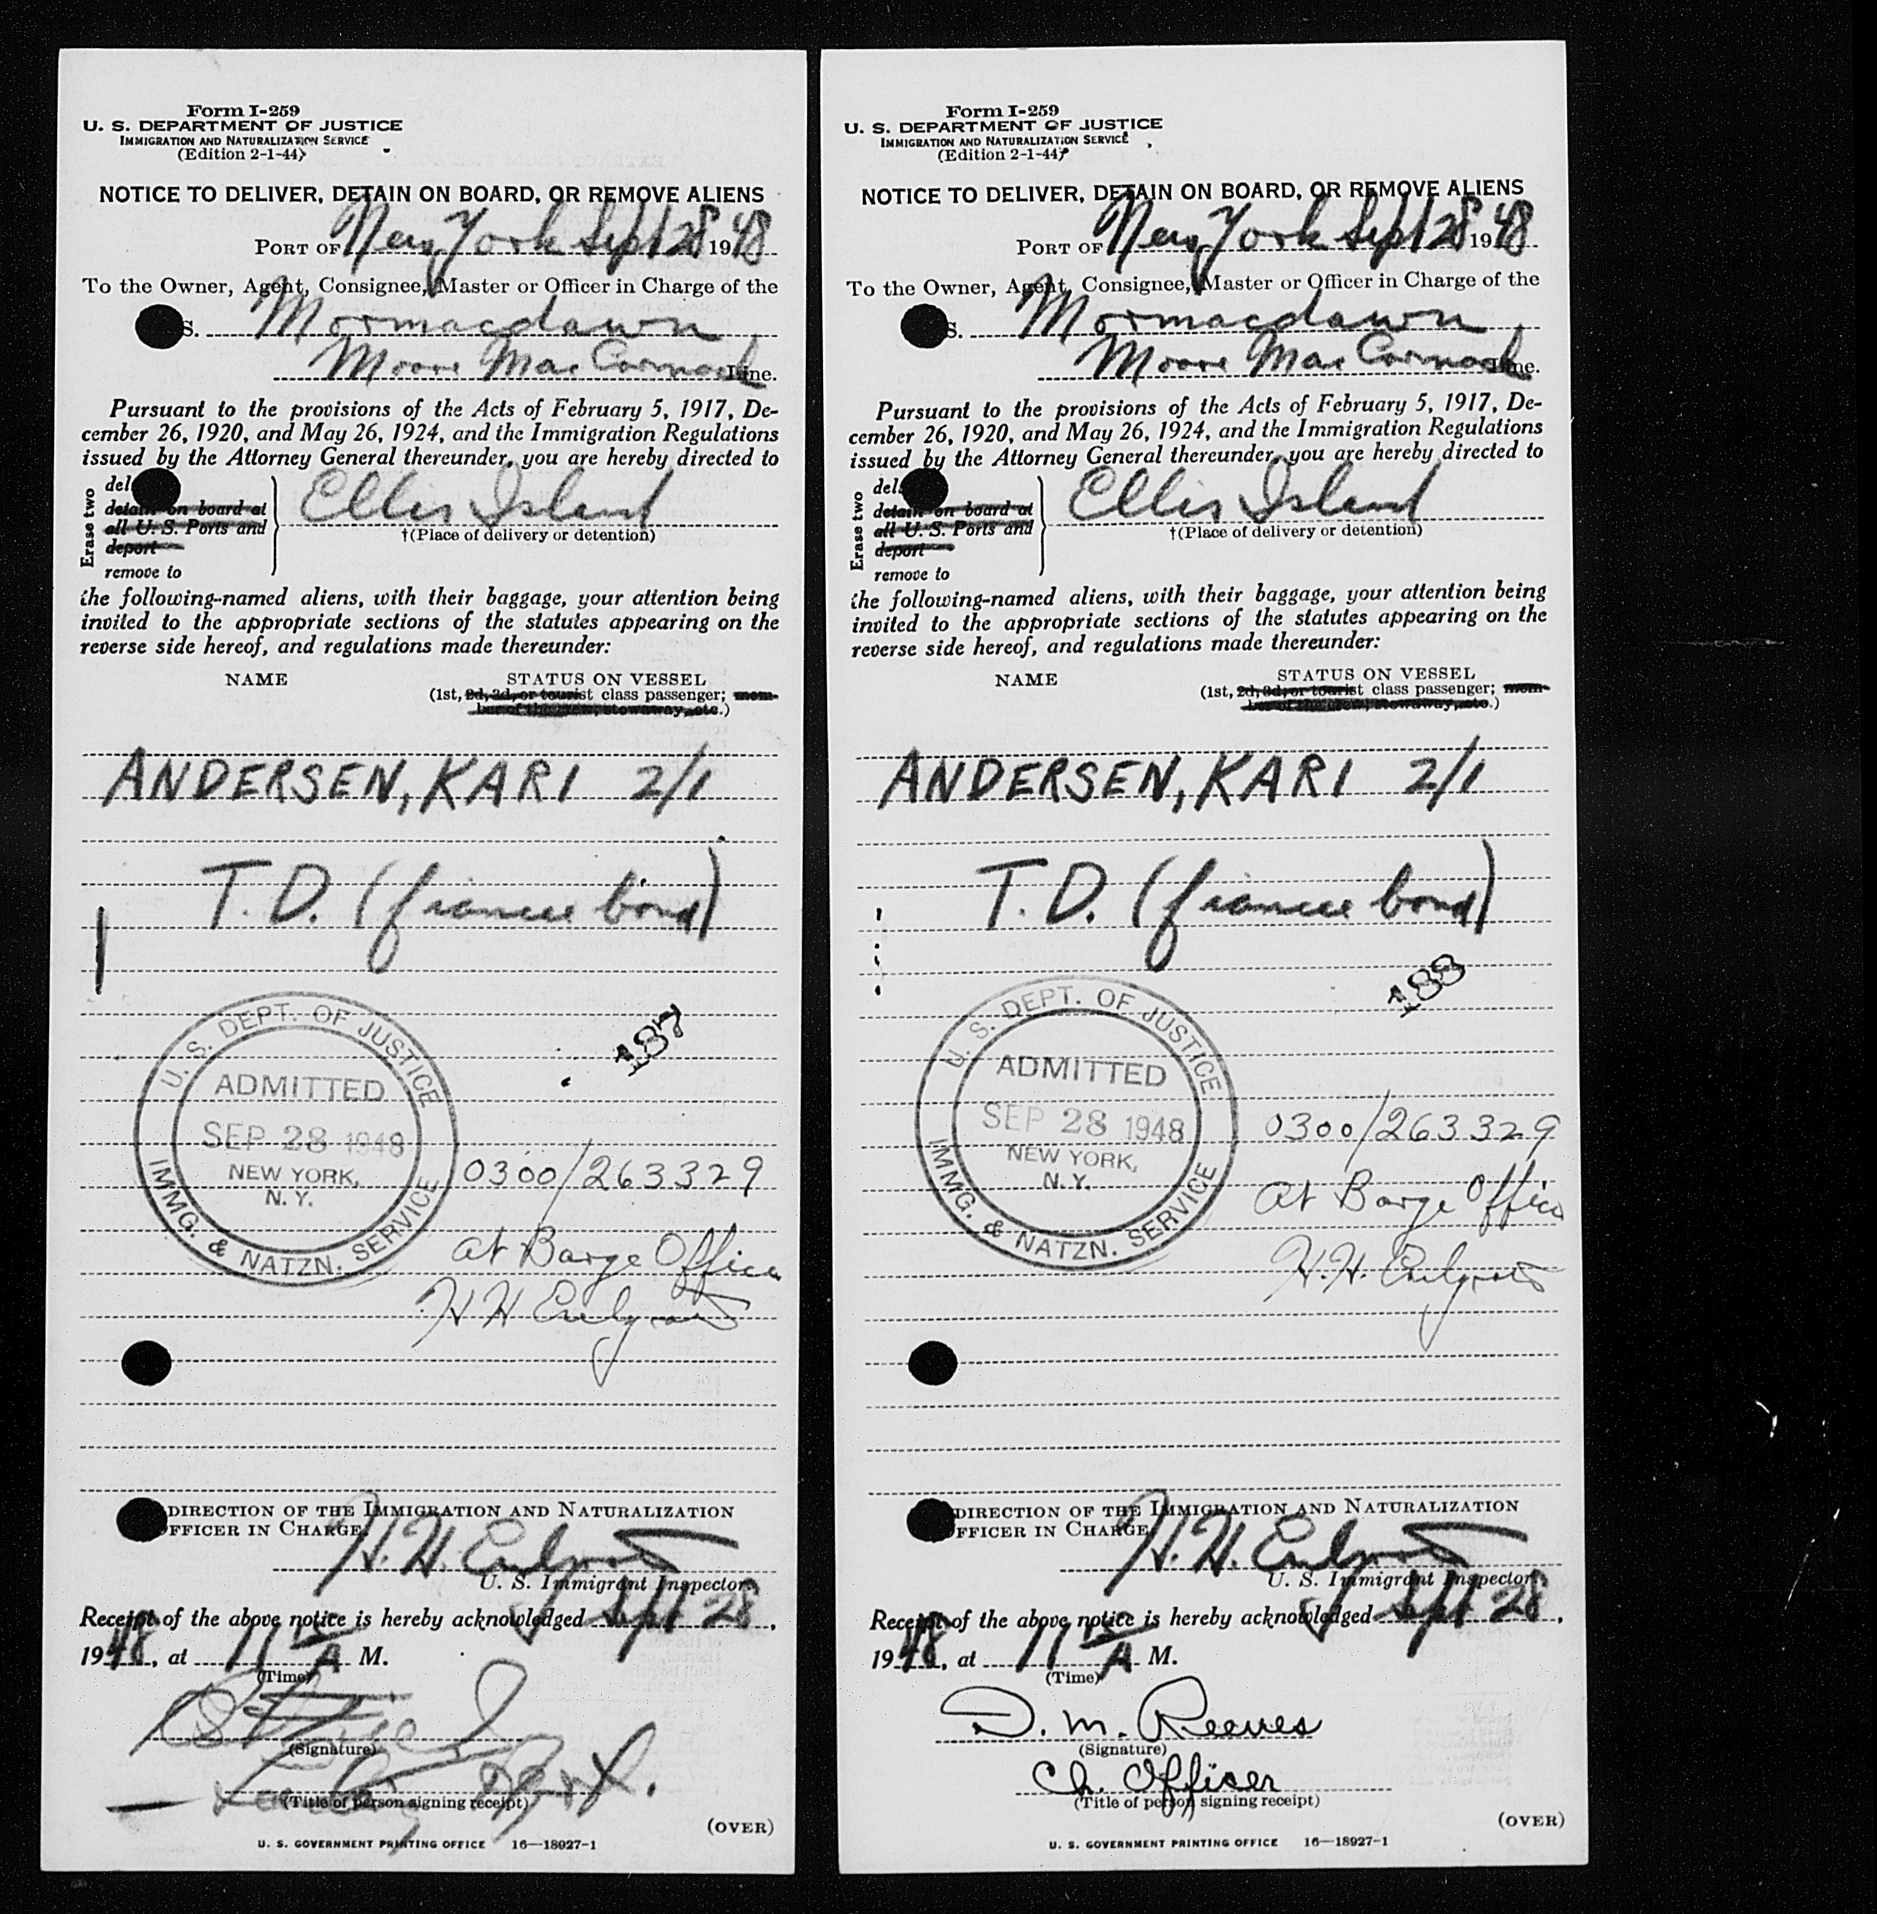 Form I-259
U. S. DEPARTMENT OF JUSTICE
IMMIGRATION AND NATURALIZATION SERVICE
(Edition 2-1-44)
NOTICE TO DELIVER, DETAIN ON BOARD, OR REMOVE ALIENS
PORT OF New York Sept 28 1948
To the Owner, Agent, Consignee, Master or Officer in Charge of the
S. Mormacdawn
Moore MacCormack Line.
Pursuant to the provisions of the Acts of February 5, 1917, De-
cember 26, 1920, and May 26, 1924, and the Immigration Regulations
issued by the Attorney General thereunder, you are hereby directed to
Erase two
del
detain on board at
all U. S. Ports and
deport
remove to
Ellis Island
†(Place of delivery or detention)
the following-named aliens, with their baggage, your attention being
invited to the appropriate sections of the statutes appearing on the
reverse side hereof, and regulations made thereunder:
NAME STATUS ON VESSEL
(1st, 2d, 3d, or tourist class passenger; mem-
ber of the crew, stowaway, etc.)
ANDERSEN, KARI 2/1
T.D. (fiancee bond)
187
U. S. DEPT. OF JUSTICE
ADMITTED
SEP 28 1948
NEW YORK,
N. Y.
IMMG. & NATZN. SERVICE
0300/263329
at Barge Office
H H
DIRECTION OF THE IMMIGRATION AND NATURALIZATION
FFICER IN CHARGE.
H. H.
U. S. Immigrant Inspector.
Receipt of the above notice is hereby acknowledged Sept 28,
1948, at 11 A M.
(Time)
(Signature)
(Title of person signing receipt)
(OVER)
U. S. GOVERNMENT PRINTING OFFICE 16—18927-1
Form I-259
U. S. DEPARTMENT OF JUSTICE
IMMIGRATION AND NATURALIZATION SERVICE
(Edition 2-1-44)
NOTICE TO DELIVER, DETAIN ON BOARD, OR REMOVE ALIENS
PORT OF New York Sept 28 1948
To the Owner, Agent, Consignee, Master or Officer in Charge of the
S. Mormacdawn
Moore MacCormack Line.
Pursuant to the provisions of the Acts of February 5, 1917, De-
cember 26, 1920, and May 26, 1924, and the Immigration Regulations
issued by the Attorney General thereunder, you are hereby directed to
Erase two
del
detain on board at
all U. S. Ports and
deport
remove to
Ellis Island
†(Place of delivery or detention)
the following-named aliens, with their baggage, your attention being
invited to the appropriate sections of the statutes appearing on the
reverse side hereof, and regulations made thereunder:
NAME STATUS ON VESSEL
(1st, 2d, 3d, or tourist class passenger; mem-
ber of the crew, stowaway, etc.)
ANDERSEN, KARI 2/1
T.D. (fiancee bond)
188
U. S. DEPT. OF JUSTICE
ADMITTED
SEP 28 1948
NEW YORK,
N. Y.
IMMG. & NATZN. SERVICE
0300/263329
at Barge Office
H. H.
DIRECTION OF THE IMMIGRATION AND NATURALIZATION
FFICER IN CHARGE
H. H.
U. S. Immigrant Inspector.
Receipt of the above notice is hereby acknowledged Sept 28,
1948, at 11 A M.
(Time)
D. M. Reeves
(Signature)
Ch. Officer
(Title of person signing receipt)
(OVER)
U. S. GOVERNMENT PRINTING OFFICE 16—18927-1